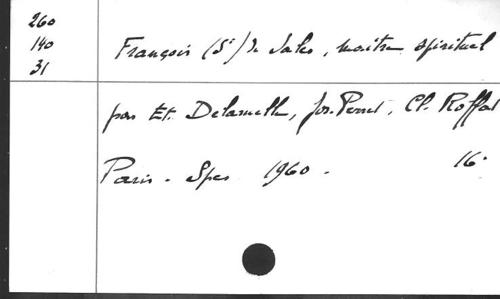 260
140
31
François (St) de Sales, maître spirituel
par Et. Delaruelle, Jos. Perret, Cl. Roffat
Paris - Spes 1960 - 16°